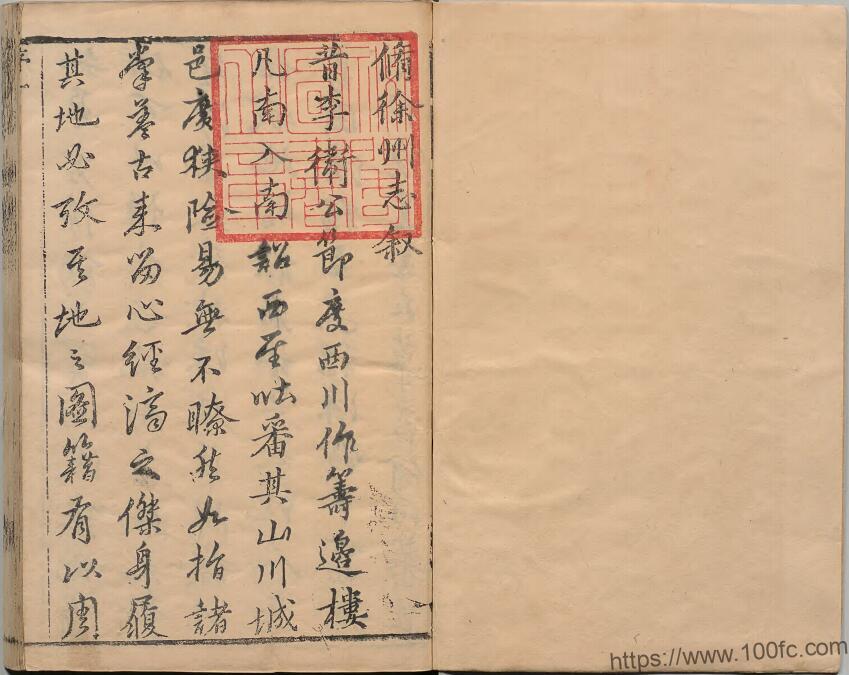 脩徐州志叙
昔李衛公節度西川作籌邊樓
凡南入南詔西至吐番其山川城
邑廣狹險易無不瞭然如指諸
掌蓋古来留心經濟之傑身履
其地必攷其地之圖籍有以周
https://www.100fc.com